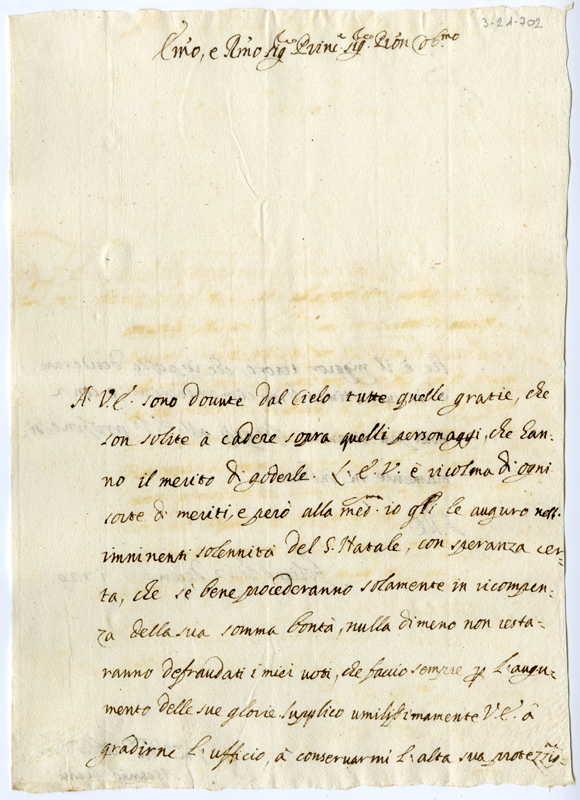 3-21-702
Em̃o, e Rm̃o Sig.re Prin.e Sig.re Pron Ob.mo
A. V. E. sono douute dal Cielo tutte quelle gratie, che
son solite à cadere sopra quelli personaggi, che han-
no il merito di goderle. L'. E. V. è ricolma di ogni
sorte di meriti, e però alla med.ma io gli le auguro nell'
imminenti solennità del S. Natale, con speranza cer-
ta, che se bene procederanno solamente in ricompen-
za della sua somma bontà, nulla di meno non resta-
ranno defraudati i miei voti, che faccio sempre p L'. augu-
mento delle sue glorie. Supplico umilissimamente V. E. à
gradirne L'. ufficio, à conservarmi L'. alta sua protez-